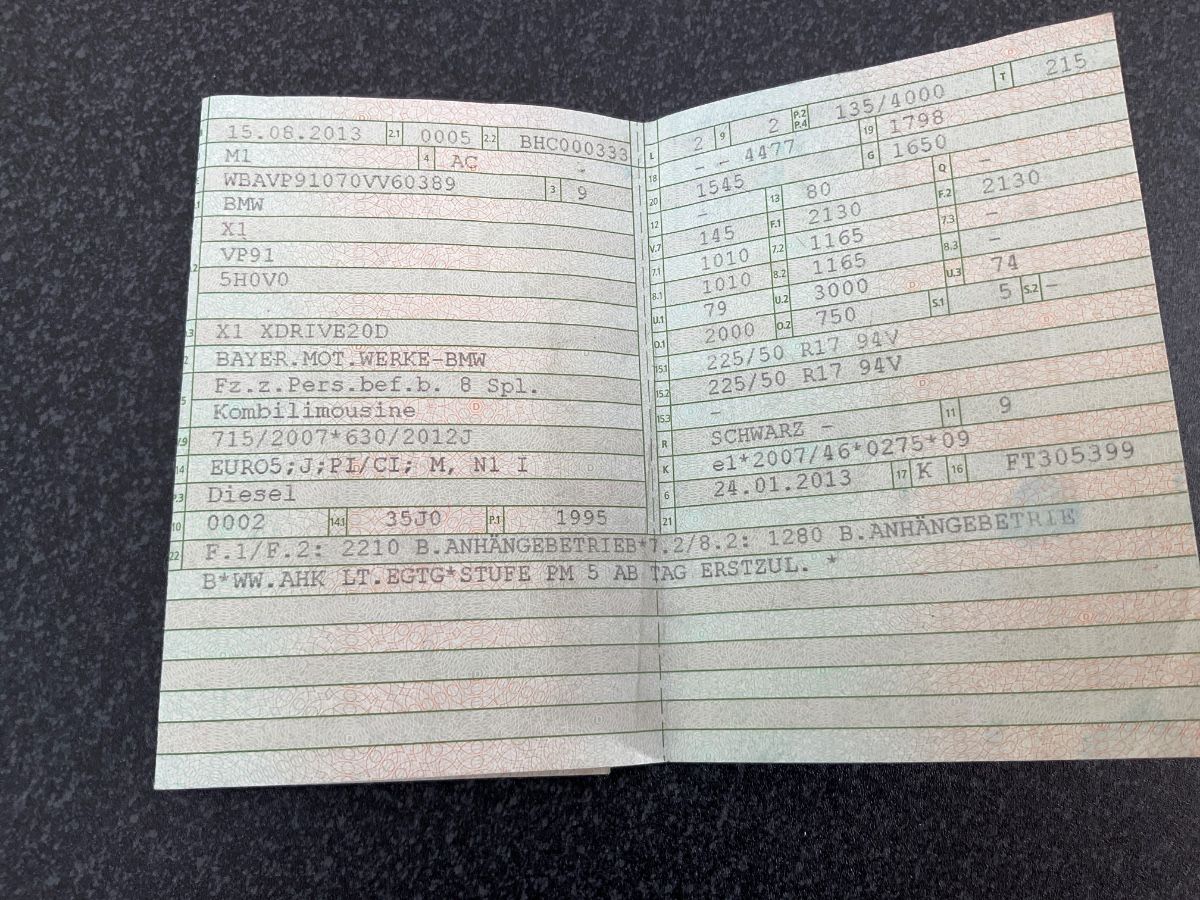 15.08.2013 2.1 0005 2.2 BHC000333
M1 4 AC -
WBAVP91070VV60389 3 9
.1 BMW
X1
VP91
.2 5H0V0
.3 X1 XDRIVE20D
2 BAYER.MOT.WERKE-BMW
Fz.z.Pers.bef.b. 8 Spl.
5 Kombilimousine
/9 715/2007*630/2012J
14 EURO5;J;PI/CI; M, N1 I
.3 Diesel
10 0002 14.1 35J0 P.1 1995
L 2 9 2 P.2 P.4 135/4000 T 215
18 - - 4477 19 1798
20 1545 G 1650
12 - 13 80 Q -
V.7 145 F.1 2130 F.2 2130
7.1 1010 7.2 1165 7.3 -
8.1 1010 8.2 1165 8.3 -
U.1 79 U.2 3000 U.3 74
O.1 2000 O.2 750 S.1 5 S.2 -
15.1 225/50 R17 94V
15.2 225/50 R17 94V
15.3 -
R SCHWARZ - 11 9
K e1*2007/46*0275*09
6 24.01.2013 17 K 16 FT305399
21
22 F.1/F.2: 2210 B.ANHÄNGEBETRIEB*7.2/8.2: 1280 B.ANHÄNGEBETRIE
B*WW.AHK LT.EGTG*STUFE PM 5 AB TAG ERSTZUL. *